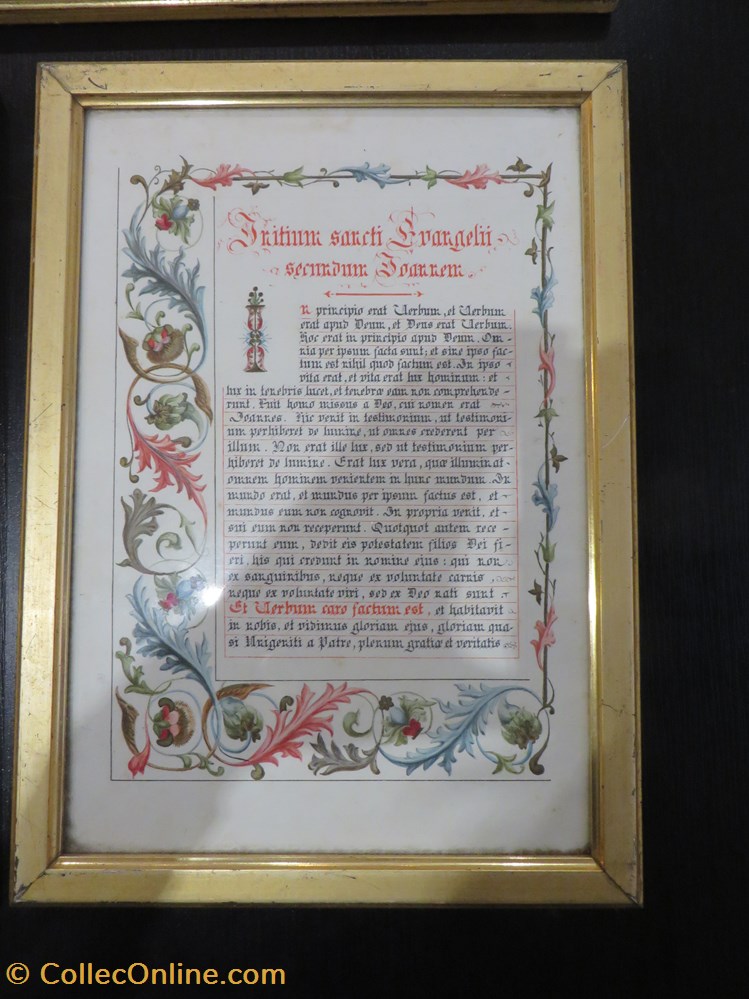 Initium sancti Evangelii
secundum Joannem
In principio erat Verbum, et Verbum
erat apud Deum, et Deus erat Verbum.
Hoc erat in principio apud Deum. Om-
nia per ipsum facta sunt; et sine ipso fac-
tum est nihil quod factum est. In ipso
vita erat, et vita erat lux hominum: et
lux in tenebris lucet, et tenebræ eam non comprehende-
runt. Fuit homo missus a Deo, cui nomen erat
Joannes. Hic venit in testimonium, ut testimoni-
um perhiberet de lumine, ut omnes crederent per
illum. Non erat ille lux, sed ut testimonium per-
hiberet de lumine. Erat lux vera, quæ illuminat
omnem hominem venientem in hunc mundum. In
mundo erat, et mundus per ipsum factus est, et
mundus eum non cognovit. In propria venit, et
sui eum non receperunt. Quotquot autem rece-
perunt eum, dedit eis potestatem filios Dei fi-
eri, his qui credunt in nomine ejus: qui non
ex sanguinibus, neque ex voluntate carnis,
neque ex voluntate viri, sed ex Deo nati sunt
Et Verbum caro factum est, et habitavit
in nobis, et vidimus gloriam ejus, gloriam qua-
si Unigeniti a Patre, plenum gratiæ et veritatis
© CollecOnline.com